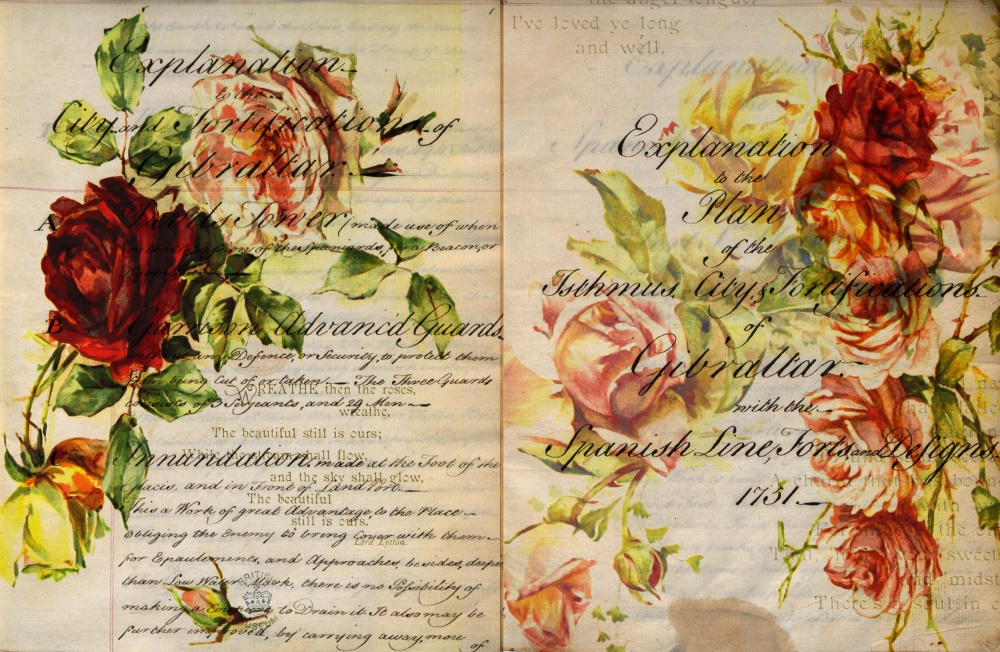 1
Explanation
to the
City and Fortifications of
Gibraltar.
A Devil's Tower (made use of when
in possession of the Spaniards, for a Beacon, or
B Garrison Advanc'd Guards,
without any Defence, or Security, to protect them
from being Cut of or taken. The Three Guards
consists of 3 Serjeants, and 29 Men
WREATHE then the roses,
wreathe,
The beautiful still is ours;
While the stream shall flow,
and the sky shall glow,
The beautiful
still is ours.
Lord Lytton.
Innundation, made at the Foot of the
Glacis, and in Front of Landport.
This a Work of great Advantage, to the Place
obliging the Enemy to bring Cover with them
for Epaulements, and Approaches, besides, deeper
than Low Water Mark, there is no Possibility of
making a to Drain it. It also may be
further improved, by carrying away, more
of
BRITISH
MUSEUM
the anger tongue,
I've loved ye long
and well,
Explanation
to the
Plan
of the
Isthmus, City & Fortifications
of
Gibraltar.
with the
Spanish Line, Forts and Designs.
1751.
A charm that has been
with
the
sweet
midst
There's a soul in e